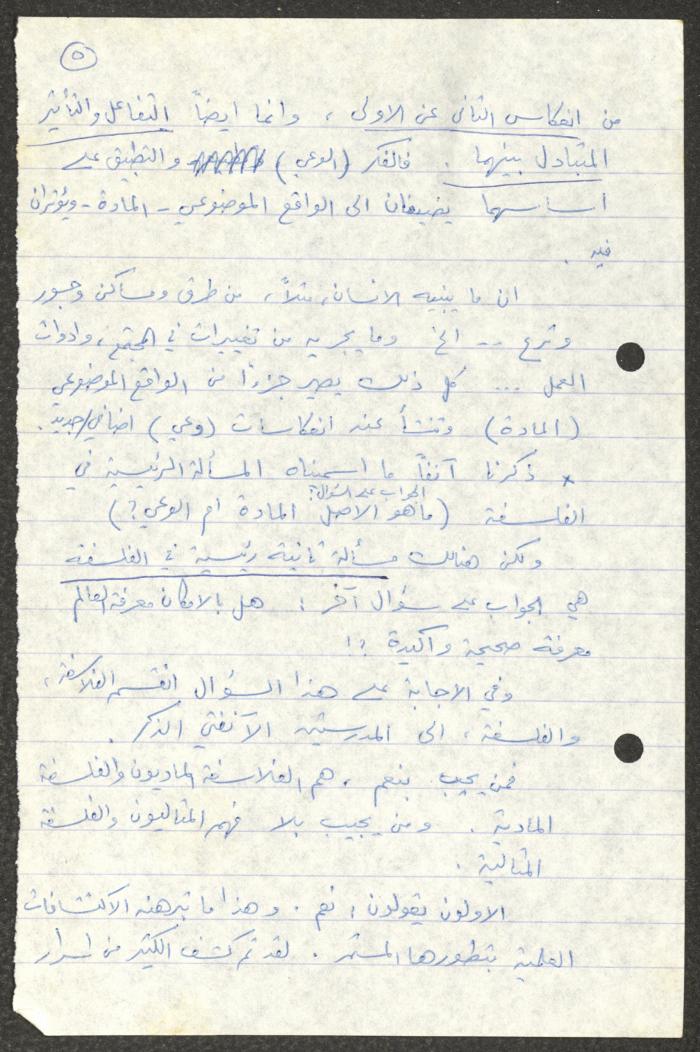 ٥
من انعكاس الثاني عن الاولى ، وانما ايضاً التفاعل والتأثير
المتبادل بينهما . فالفكر (الوعي) والتطبيق على
اساسهما يضيفان الى الواقع الموضوعي - المادة - ويؤثران
فيه .
ان ما يبنيه الانسان، مثلاً، من طرق ومساكن وجسور
وترع ... الخ وما يجريه من تغييرات في المجتمع، وادوات
العمل ... كل ذلك يصير جزءاً من الواقع الموضوعي
(المادة) وتنشأ عند انعكاسات (وعي) اضافي/جديد.
x ذكرنا آنفاً ما اسميناه المسألة الرئيسية في
الجواب على السؤال:
الفلسفة (ما هو الاصل المادة ام الوعي؟)
ولكن هنالك مسألة ثانية رئيسية في الفلسفة
هي الجواب على سؤال آخر : هل بالامكان معرفة العالم
معرفة صحيحة واكيدة ؟!
وفي الاجابة على هذا السؤال انقسم الفلاسفة،
والفلسفة ، الى المدرستين الآنفتي الذكر .
فمن يجيب بنعم ، هم الفلاسفة الماديون والفلسفة
المادية . ومن يجيب بلا فهم المثاليون والفلسفة
المثالية .
الاولون يقولون : نعم . وهذا ما تبرهنه الاكتشافات
العلمية بتطورها المستمر . لقد تم كشف الكثير من اسرار